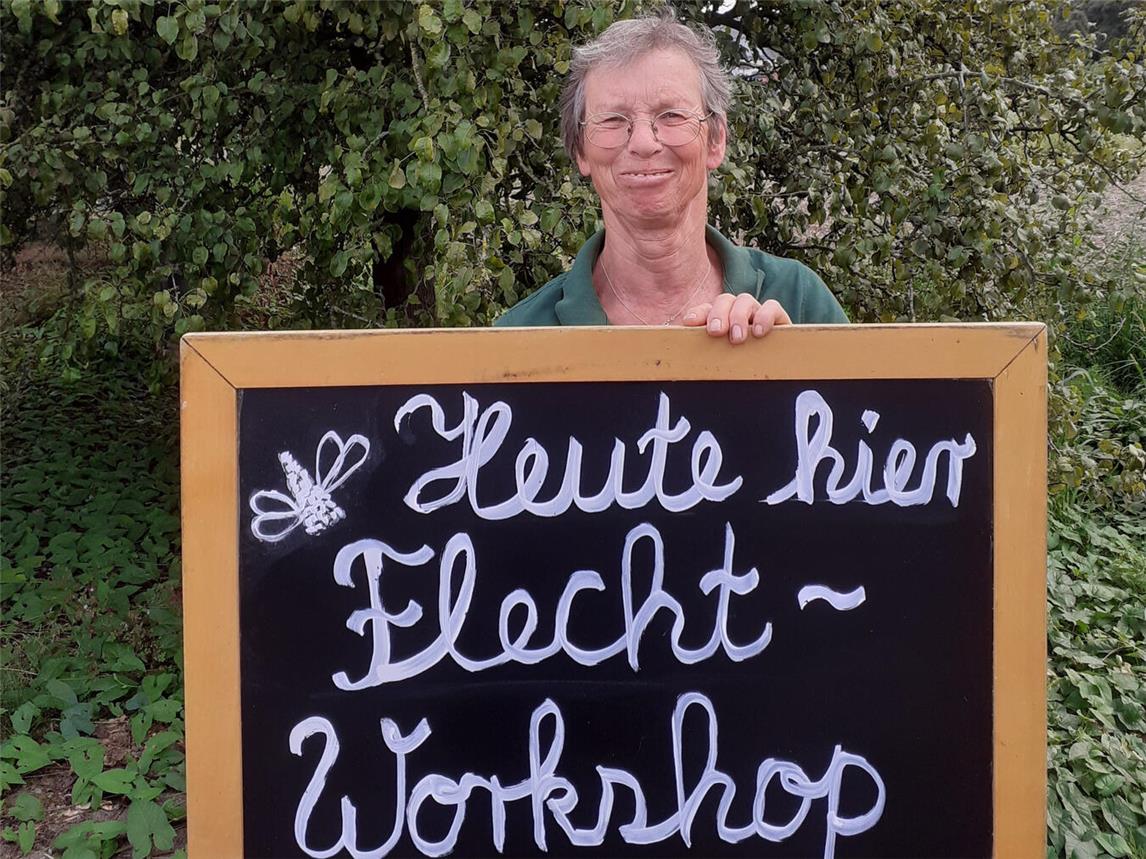 Heute hier
Flecht-
Workshop